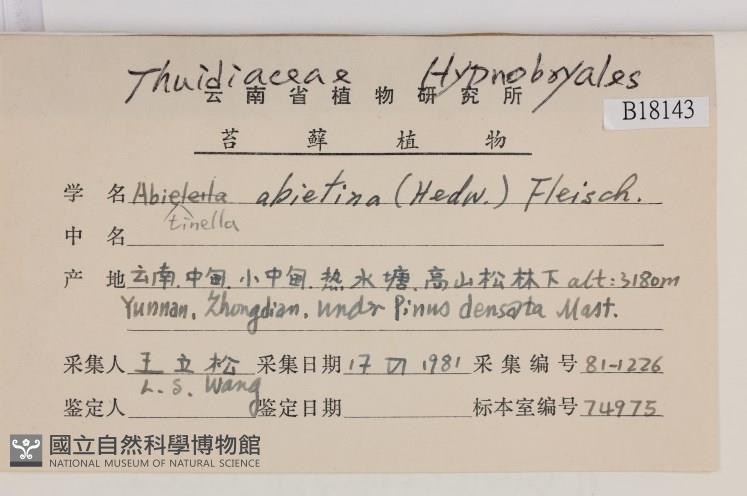 Thuidiaceae Hypnobryales
云南省植物研究所
B18143
苔藓植物
学名 Abietella abietina (Hedw.) Fleisch.
tinella
中名
产地 云南.中甸.小中甸.热水塘.高山松林下 alt: 3180m
Yunnan, Zhongdian, under Pinus densata Mast.
采集人 王立松 采集日期 17 VI 1981 采集编号 81-1226
L. S. Wang
鉴定人 鉴定日期 标本室编号 74975
國立自然科學博物館
NATIONAL MUSEUM OF NATURAL SCIENCE